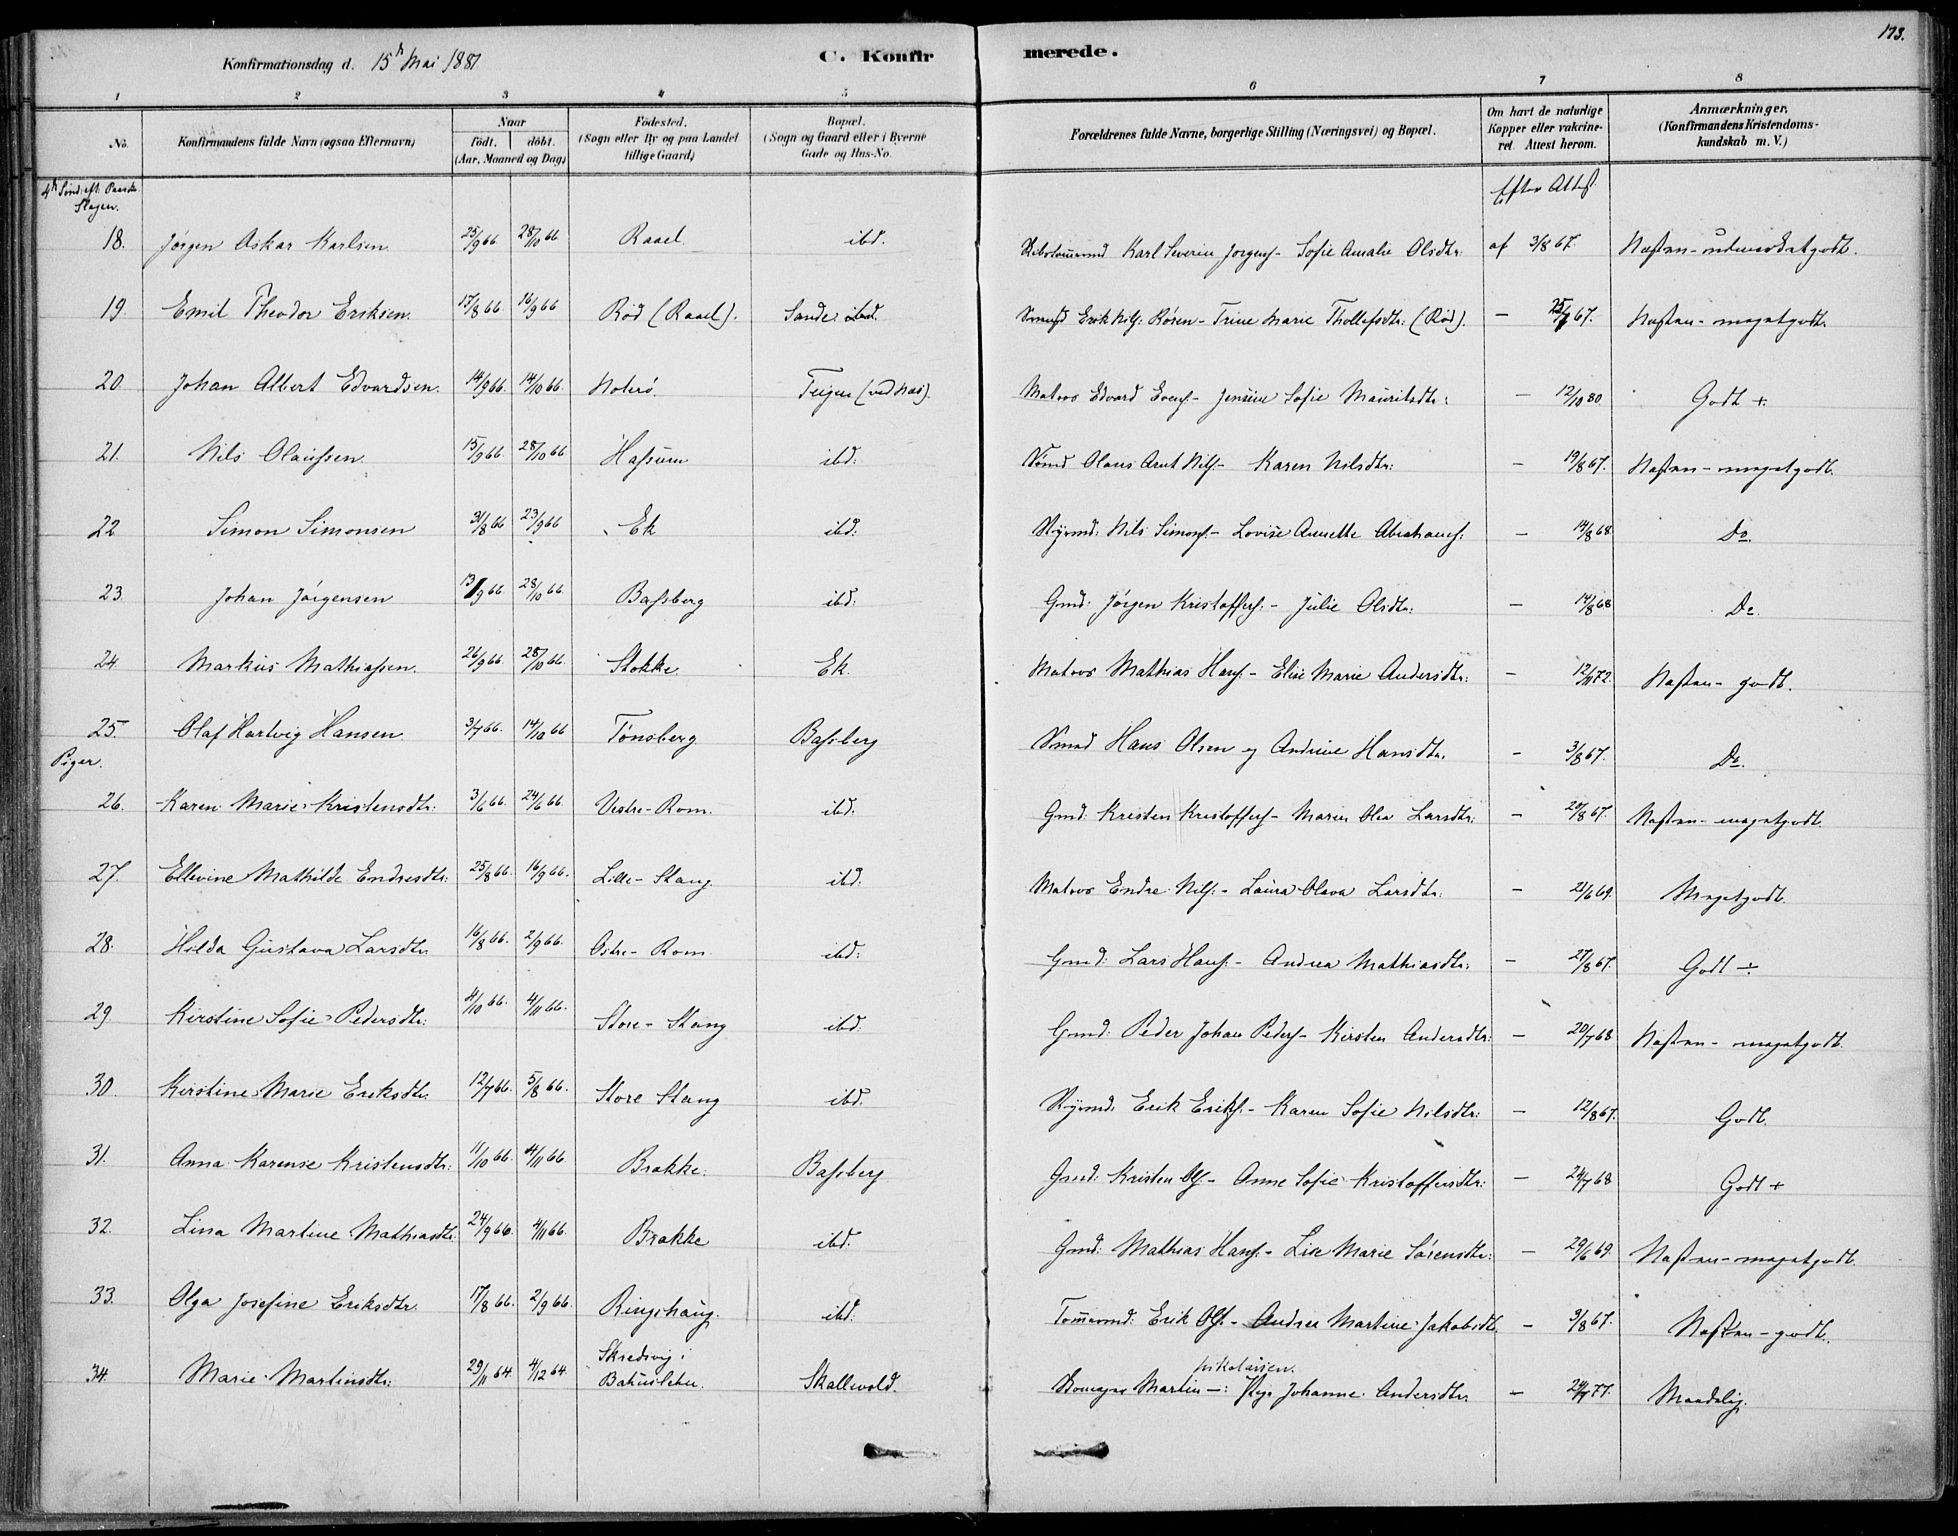 173.
Konfirmationsdag d. 15de Mai 1881
C. Konfirmerede.
1 2 3 4 5 6 7 8
No. Konfirmandens fulde Navn (ogsaa Efternavn) Naar født. døbt. (Aar, Maaned og Dag) Fødested. (Sogn eller By og paa Landet tillige Gaard) Bopæl. (Sogn og Gaard eller i Byerne Gade og Hus-No. Forældrenes fulde Navne, borgerlige Stilling (Næringsvei) og Bopæl. Om havt de naturlige Kopper eller vakcineret. Attest herom. Anmærkninger. (Konfirmandens Kristendomskundskab m. V.)
4de Sønd. eft. Paaske Slagen. Efter Attest
18. Jørgen Askar Karlsen 25/9 66 28/10 66 Raael. ibd. Karl Severin Jørgens. - Sofie Amalie Olsdtr: af 3/8 67. Næsten - udmærketgodt.
19. Emil Theodor Eriksen. 17/8 66 16/9 66 Rød (Raael). Sande ibd. Erik Nils: Røren - Trine Marie Thollefsdtr: (Rød). - 67. Næsten - megetgodt.
20. Johan Albert Edvardsen. 14/9 66. 14/10 66. Noterø. Teigen (ved Næs). Matros Edvard Evens. - Jensine Sofie Mauritsdtr: - 12/10 80. Godt +.
21. Nils Olaussen. 15/9 66 28/10 66 Hassum ibd: Olaus Arnt Nils. - Karen Nilsdtr: - 19/8 67. Næsten - megetgodt.
22. Simon Simonsen 31/8 66 23/9 66 Ek ibd: Nils Simons. - Lovise Annette Abrahams: - 14/8 68. Do.
23. Johan Jørgensen 13/9 66. 28/10 66. Bassberg ibd: Gmd: Jørgen Kristoffers. - Julie Olsdtr: - 14/8 68 Do.
24. Markus Mathiassen. 26/9 66. 28/10 66. Stokke. Ek. Matros Mathias Hans. - Elise Marie Andersdtr: - 12/11 72. Næsten - godt.
25. Olaf Hartvig Hansen. 3/7 66. 14/10 66 Tønsberg Bassberg Hans Olsen og Andrine Hansdtr. - 3/8 67. Do.
Piger.
26. Karen Marie Kristensdtr: 3/6 66. 24/6 66. Vestre-Rom. ibd. Gmd: Kristen Kristoffers. - Maren Olea Larsdtr: - 20/8 67. Næsten - megetgodt.
27. Ellevine Mathilde Endresdtr: 25/8 66. 16/9 66. Lille-Stang ibd: Matros Endre Nils: - Laura Olava Larsdtr: - 21/6 69. Megetgodt.
28. Hilda Gustava Larsdtr. 16/8 66. 2/9 66. Østre-Rom ibd: Gmd: Lars Hans. - Andrea Mathiasdtr: - 27/8 67. Godt ÷
29. Kirstine Sofie Pedersdtr: 4/10 66. 4/11 66. Store-Stang ibd: Gmd: Peder Johan Peders. - Kirsten Andersdtr: - 20/7 68 Næsten - megetgodt.
30. Kirstine Marie Eriksdtr. 12/7 66. 5/8 66. Store Stang ibd. Erik Eriks. - Karen Sofie Nilsdtr: - 12/8 67. Godt.
31. Anna Karense Kristensdtr: 11/10 66. 4/11 66. Brække. Bassberg Gmd: Kristen Ols. - Anne Sofie Kristoffersdtr: - 24/7 68 Godt +
32. Lina Martine Mathiasdtr. 24/9 66. 4/11 66. Brække ibd. Gmd: Mathias Hans. - Lise Marie Sørensdtr: - 29/6 69. Næsten - megetgodt.
33. Olga Josefine Eriksdtr. 17/8 66. 2/9 66. Ringshaug. ibd: Tømmermd: Erik Ols. - Andrea Martine Jakobsdtr. - 3/8 67. Næsten - godt.
34. Marie Martinsdtr: 29/11 64. 4/12 64. Skredsvig i Bahuslehn. Skallevold. Martin -: Pige Johanne Andersdtr. - 77. Maadelig.